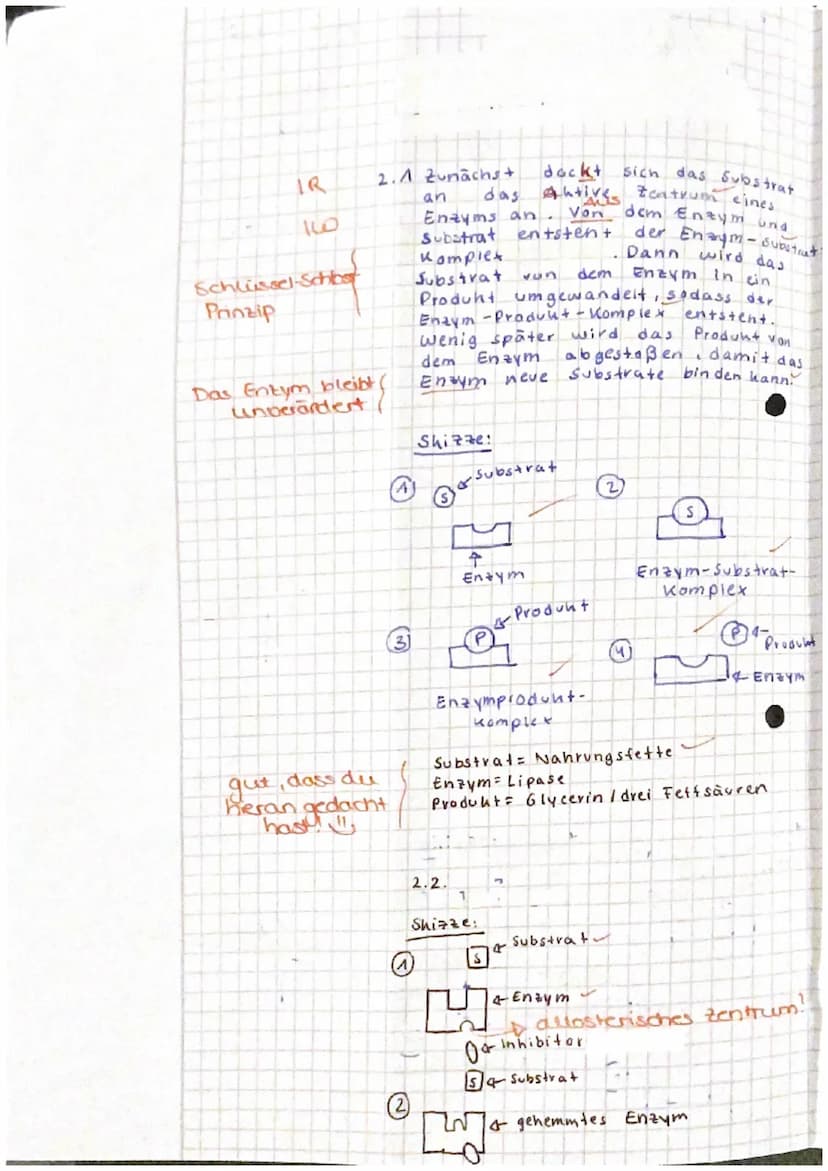 1R
1LO
Schlüssel-Schloß
Prinzip
Das Entym bleibt
unverändert
2.1 Zunächst dockt sich das Substrat
an das Aktive Zentrum eines
Enzyms an. Von Aus dem Enzym und
Substrat entsteht der Enzym-Substrat
Komplex. Dann wird das
Substrat von dem Enzym in ein
Produkt umgewandelt, sodass der
Enzym-Produkt-Komplex entsteht.
Wenig später wird das Produkt von
dem Enzym abgestoßen, damit das
Enzym neue Substrate binden kann.
Skizze:
1 S Substrat
Enzym
2 S
Enzym-Substrat-
Komplex
3 P Produkt
Enzymprodukt-
Komplex
4 P Produkt
Enzym
gut, dass du
heran gedacht
hast!
Substrat= Nahrungsfette
Enzym= Lipase
Produkt= Glycerin / drei Fettsäuren
2.2.
Skizze:
1 S Substrat
Enzym
allosterisches Zentrum!
Inhibitor
S Substrat
2 gehemmtes Enzym